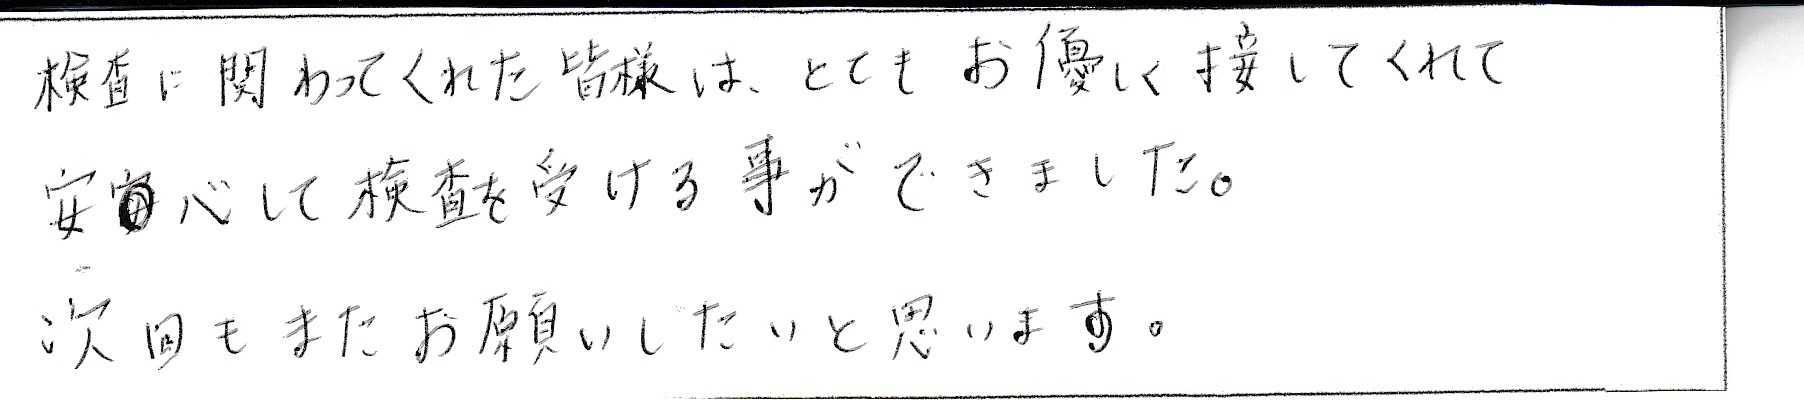 検査に関わってくれた皆様は、とてもお優しく接してくれて
安心して検査を受ける事ができました。
次回もまたお願いしたいと思います。